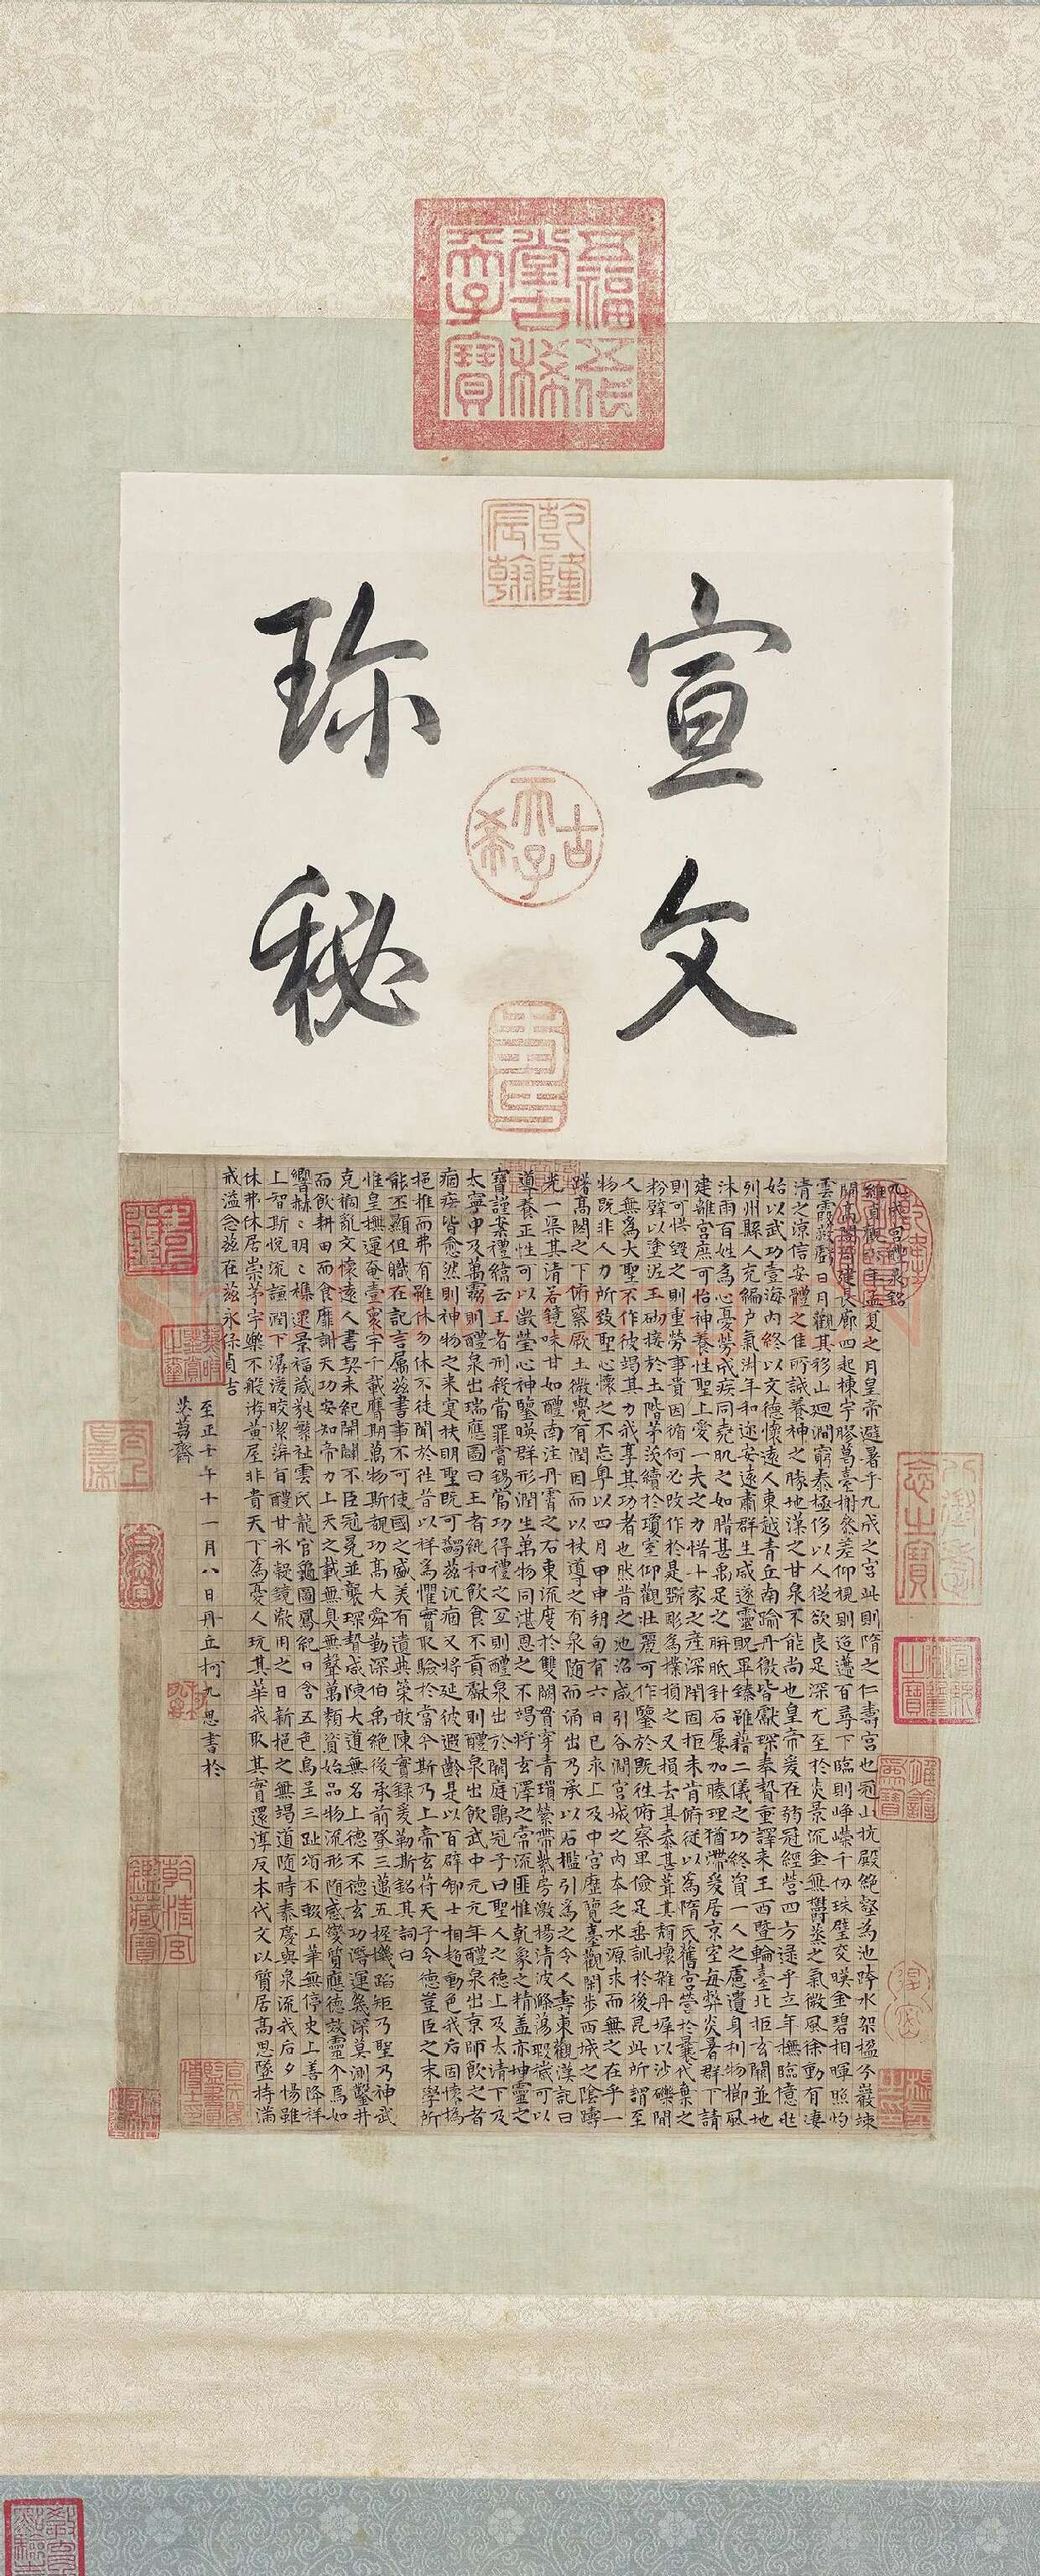 五福五代
堂古稀
天子寶
乾隆
宸翰
宣文
珎秘
古希天子
九成宮醴泉銘
維貞觀六年孟夏之月皇帝避暑乎九成之宮此則隋之仁壽宮也冠山抗殿絕壑為池跨水架楹分巖竦
闕高閣周建長廊四起棟宇膠葛臺榭參差仰視則迢遰百尋下臨則崢嶸千仞珠璧交暎金碧相暉照灼
雲霞蔽虧日月觀其移山迴澗窮泰極侈以人從欲良足深尤至於炎景流金無鬱蒸之氣微風徐動有淒
清之涼信安體之佳所誠養神之勝地漢之甘泉不能尚也皇帝爰在弱冠經營四方逮乎立年撫臨億兆
始以武功壹海內終以文德懷遠人東越青丘南踰丹徼皆獻琛奉贄重譯来王西暨輪臺北拒玄闕並地
列州縣人充編戶氣淑年和迩安遠肅群生咸遂靈貺畢臻雖藉二儀之功終資一人之慮遺身利物櫛風
沐雨百姓為心憂勞成疾同堯肌之如腊甚禹足之胼胝針石屢加腠理猶滯爰居京室每弊炎暑群下請
建離宮庶可怡神養性聖上愛一夫之力惜十家之產深閉固拒未肯俯從以為隋氏舊宮營於曩代棄之
則可惜毀之則重勞事貴因循何必改作於是斲彫為樸損之又損去其泰甚葺其頹壞雜丹墀以沙礫間
粉壁以塗泥玉砌接於土階茅茨續於瓊室仰觀壯麗可作鑒於既往俯察卑儉足垂訓於後昆此所謂至
人無為大聖不作彼竭其力我享其功者也然昔之池沼咸引谷澗宮城之內本乏水源求而無之在乎一
物既非人力所致聖心懷之不忘粵以四月甲申朔旬有六日己亥上及中宮歷覽臺觀閑步西城之陰躊
躇高閣之下俯察厥土微覺有潤因而以杖導之有泉隨而涌出乃承以石檻引為之令人壽東觀漢記曰
光一渠其清若鏡味甘如醴南注丹霄之右東流度於雙闕貫穿青瑣縈帶紫房激揚清波滌蕩瑕穢可以
導養正性可以澂瑩心神鑒暎群形潤生萬物同湛恩之不竭將玄澤之常流匪惟乾象之精蓋亦坤靈之
寶謹案禮緯云王者刑殺當罪賞錫當功得禮之宜則醴泉出於闕庭鶡冠子曰聖人之德上及太清下及
太寧中及萬靈則醴泉出瑞應圖曰王者純和飲食不貢獻則醴泉出飲武中元元年醴泉出京師飲之者
痼疾皆愈然則神物之来寔扶明聖既可蠲茲沉痼又將延彼遐齡是以百辟卿士相趨動色我后固懷撝
挹推而弗有雖休勿休不徒聞於往昔以祥為懼實取驗於當今斯乃上帝玄符天子令德豈臣之末學所
能丕顯但職在記言屬茲書事不可使國之盛美有遺典策敢陳實錄爰勒斯銘其詞曰
惟皇撫運奄壹寰宇千載膺期萬物斯覩功高大舜勤深伯禹絕後承前登三邁五握機蹈矩乃聖乃神武
克禍亂文懷遠人書契未紀開闢不臣冠冕並襲琛贄咸陳大道無名上德不德玄功潛運幾深莫測鑿井
而飲耕田而食靡謝天功安知帝力上天之載無臭無聲萬類資始品物流形隨感變質應德效靈介焉如
響赫〻明〻雜還景福葳蕤繁祉雲氏龍官龜圖鳳紀日含五色烏呈三趾頌不輟工筆無停史上善降祥
上智斯悅流謙潤下潺湲皎潔萍旨醴甘冰凝鏡澈用之日新挹之無竭道隨時泰慶與泉流我后夕惕雖
休弗休居崇茅宇樂不般遊黃屋非貴天下為憂人玩其華我取其實還淳反本代文以質居高思墜持滿
戒溢念茲在茲永保貞吉
至正壬午十一月八日丹丘柯九思書於
太上皇帝
八徵耄念之寶
宜子孫
乾清宮鑑藏寶